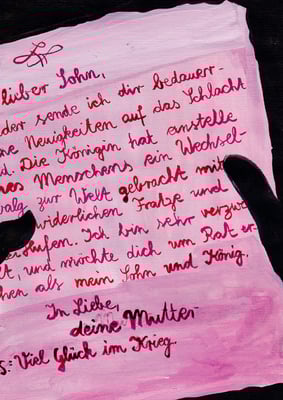 lieber Sohn,
der sende ich dir bedauer-
ne Neuigkeiten auf das Schlacht
d. Die Königin hat anstelle
nes Menschens ein Wechsel-
alg zur Welt gebracht mit
widerlichen Fratze und
hufen. Ich bin sehr verzw
lt, und möchte dich um Rat er-
hen als mein Sohn und König.
In Liebe,
deine Mutter
S: Viel Glück im Krieg.